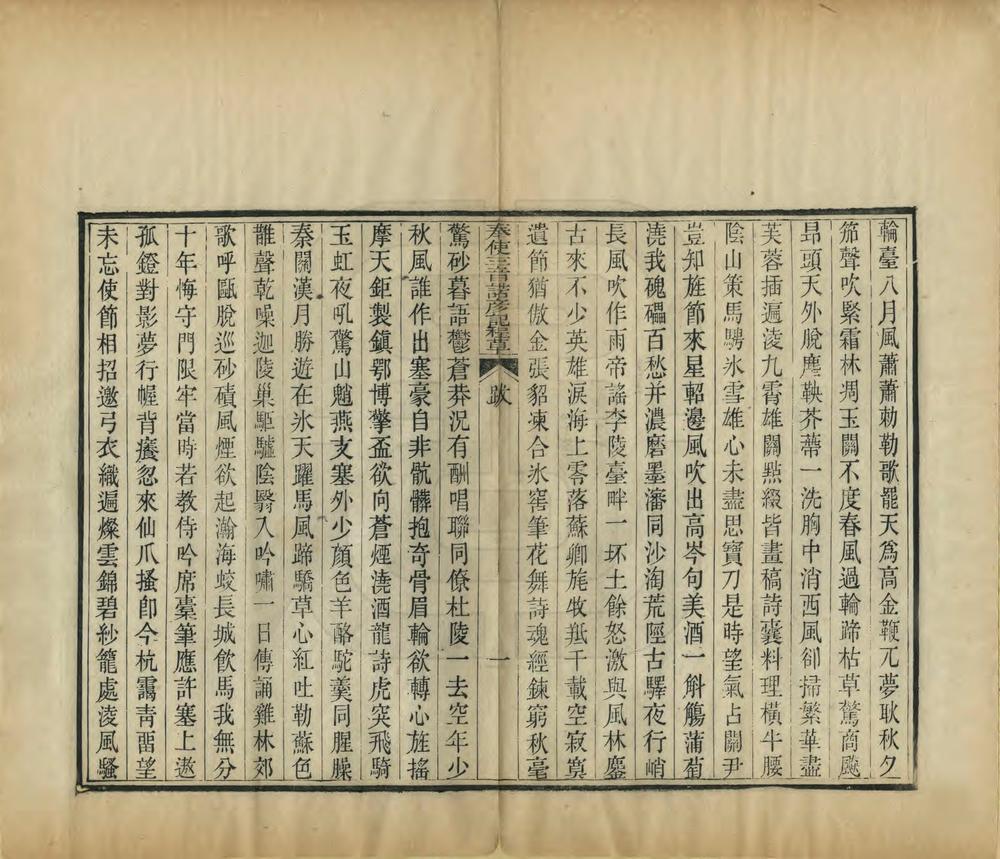 輪臺八月風蕭蕭勅勒歌罷天爲高金鞭兀夢耿秋夕
笳聲吹緊霜林凋玉關不度春風過輪蹄枯草驚商飈
昻頭天外脫塵鞅芥蔕一洗胸中消西風卻掃繁華盡
芙蓉插遍淩九霄雄關點綴皆畫稿詩囊料理橫牛腰
陰山策馬騁氷雪雄心未盡思寶刀是時望氣占關尹
豈知旌節來星軺邊風吹出高岑句美酒一斛觴蒲萄
澆我磈礧百愁并濃磨墨瀋同沙淘荒陘古驛夜行峭
長風吹作雨帝謠李陵臺畔一坏土餘怒激與風林鏖
古來不少英雄淚海上零落蘇卿旄牧羝千載空寂寞
遺節猶傲金張貂凍合氷窖筆花舞詩魂經鍊窮秋毫
奉使三音諾彥記程草 跋 一
驚砂暮語鬱蒼莽況有酬唱聯同僚杜陵一去空年少
秋風誰作出塞豪自非骯髒抱奇骨眉輪欲轉心旌搖
摩天鉅製鎭鄂博擎盃欲向蒼煙澆酒龍詩虎突飛騎
玉虹夜吼驚山魈燕支塞外少顏色羊酪駝羹同腥臊
秦關漢月勝遊在氷天躍馬風蹄驕草心紅吐勒蘇色
雝聲乾噪迦陵巢駏驉陰翳入吟嘯一日傳誦雞林郊
歌呼甌脫巡砂磧風煙欲起瀚海蛟長城飮馬我無分
十年悔守門限牢當時若教侍吟席橐筆應許塞上遨
孤鐙對影夢行幄背癢忽來仙爪搔卽今杭靄靑留望
未忘使節相招邀弓衣織遍燦雲錦碧紗籠處淩風騷